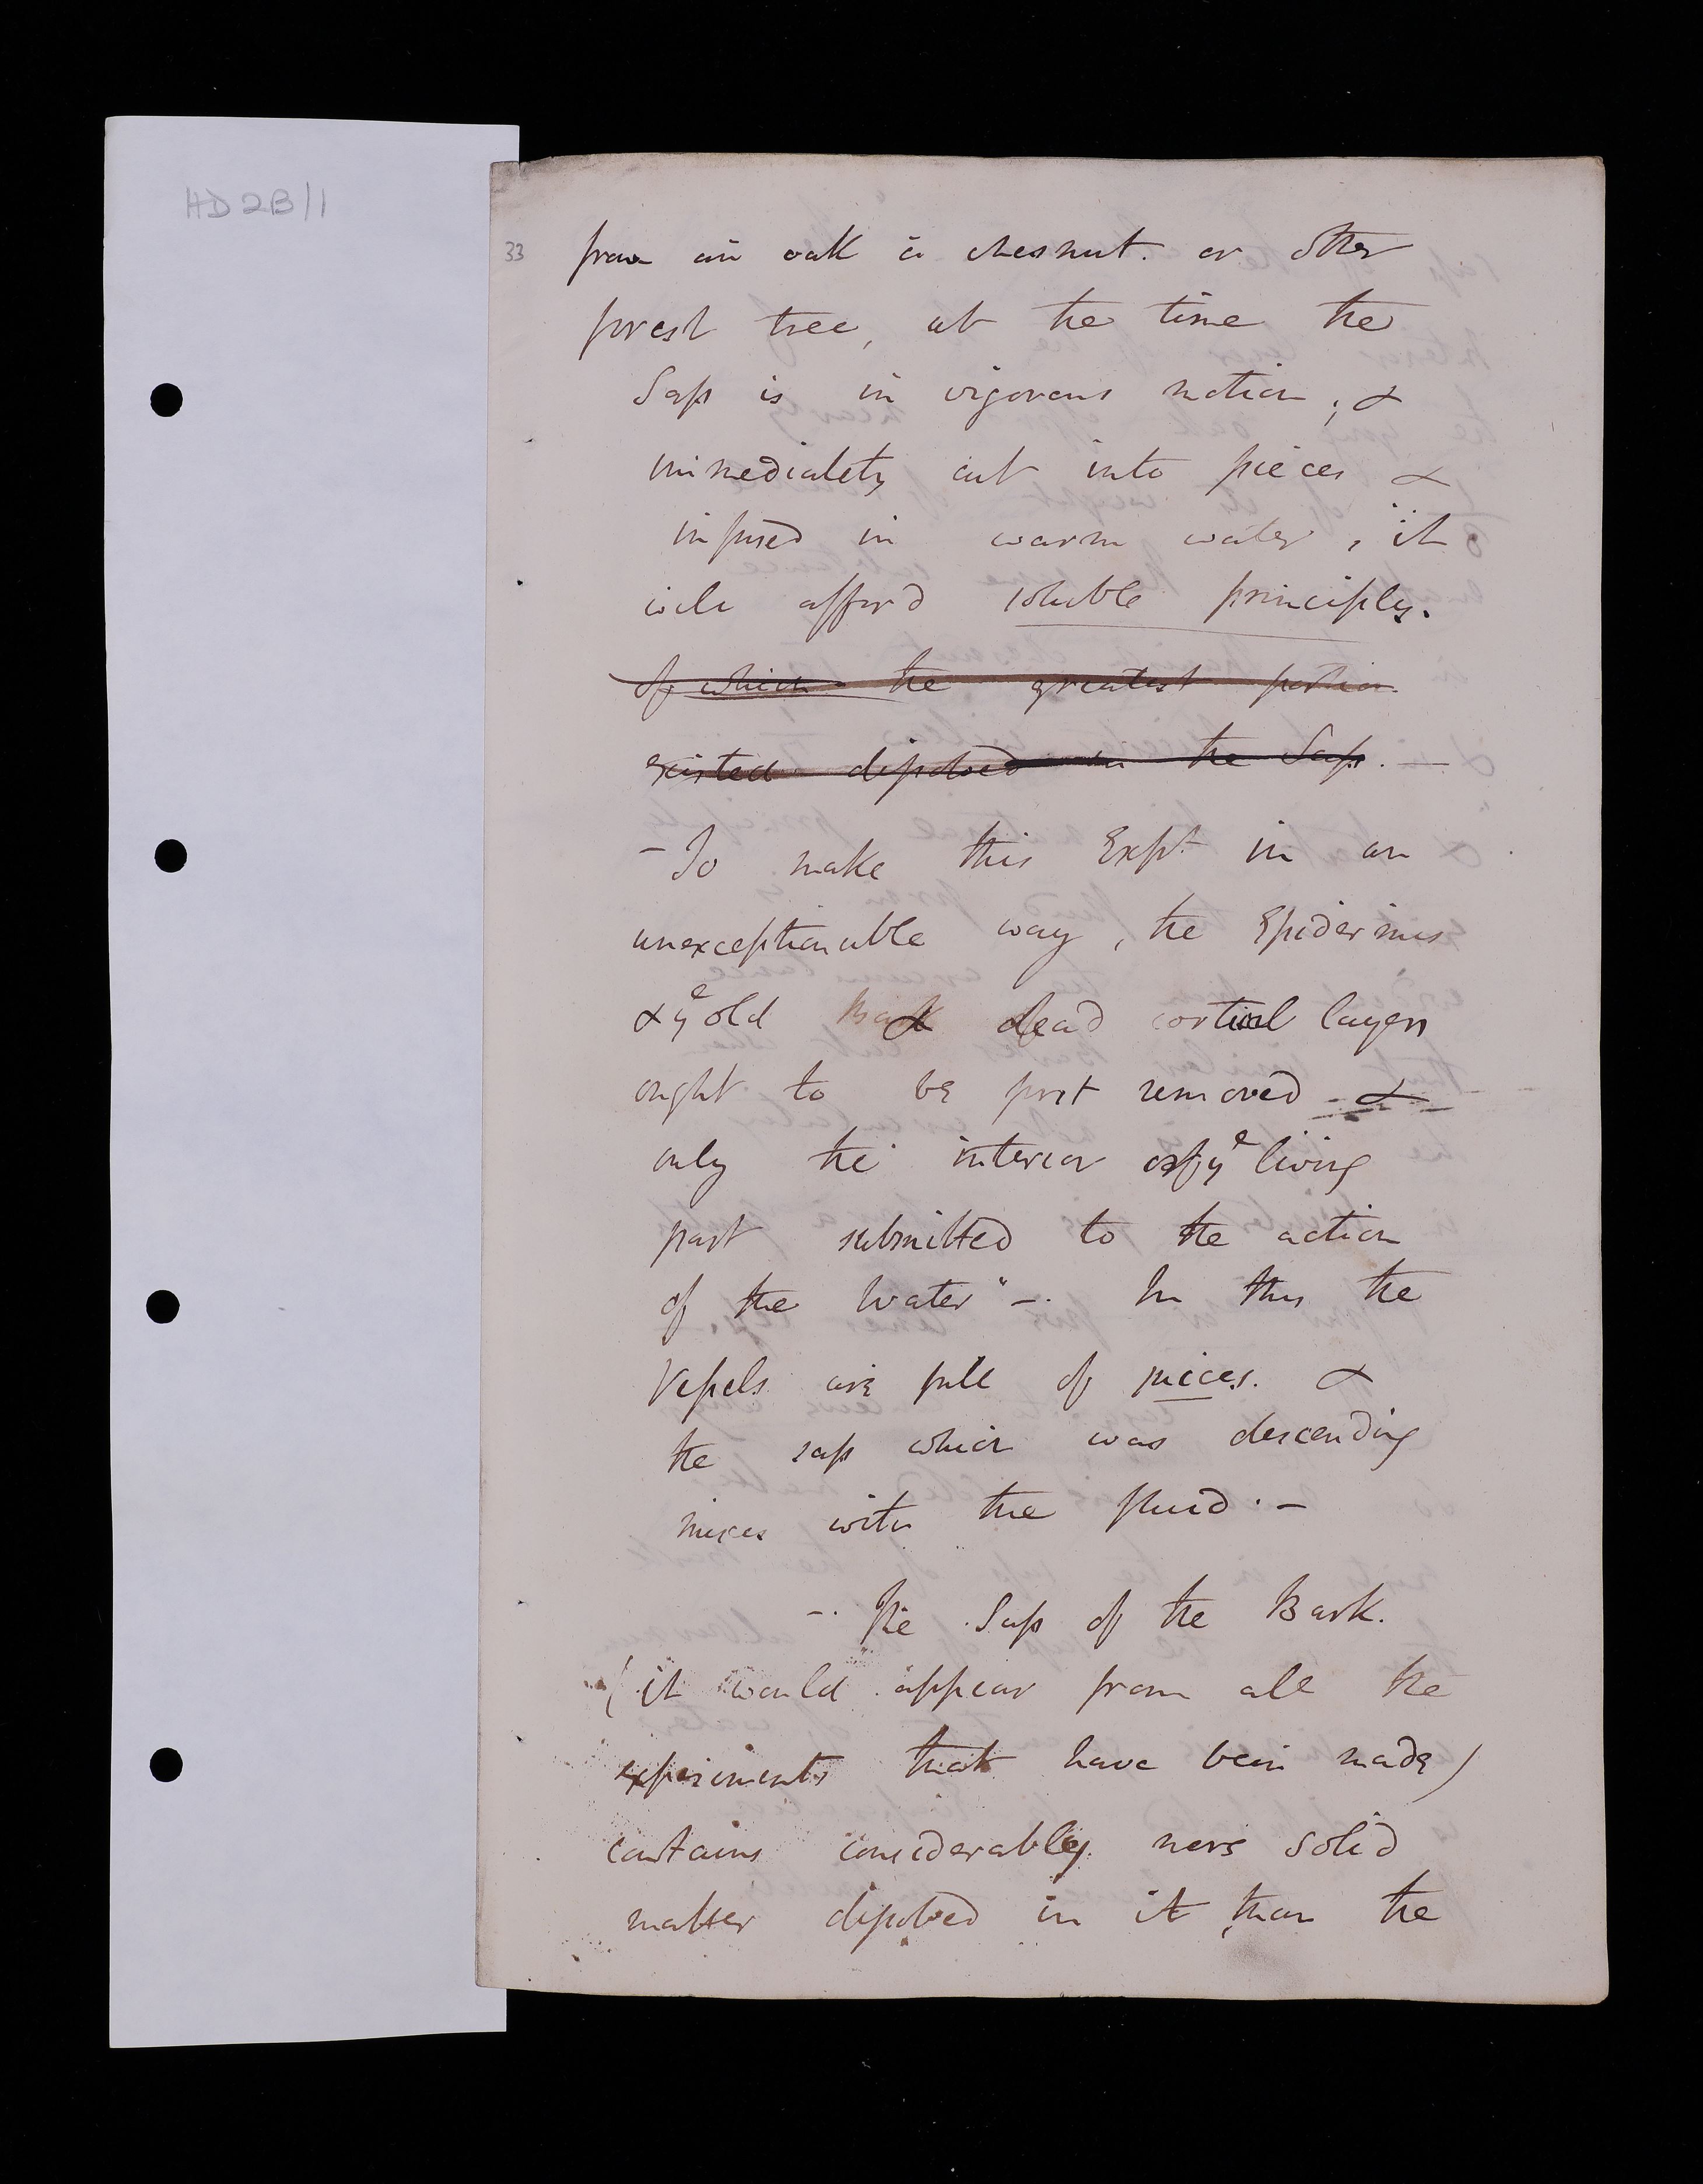 HD2B/1
33
from an oak a chesnut. or other
forest tree, at the time the
Sap is in vigorous motion; &
immediately cut into pieces &
infused in warm water, it
will afford soluble principles.
of which the greatest portion
existed dissolved in the Sap. —
- To make this Expt in an
unexceptionable way, the Epidermis
& ye old & dead cortical layers
ought to be first removed &
only the interior of ye living
part submitted to the action
of the Water" —. In this the
Vessels are full of juices. &
the sap which was descending
mixes with the fluid. —
—. The Sap of the Bark.
(it would appear from all the
experiments that have been made)
contains considerably more solid
matter dissolved in it than the